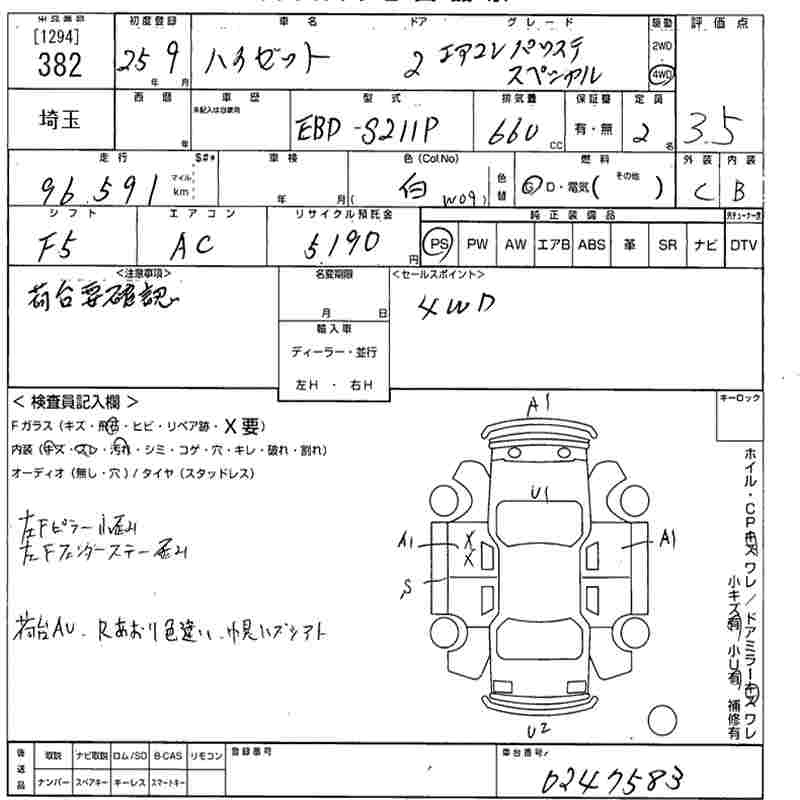 出品番号 初度登録 車名 ドア グレード 駆動 評価点
[1294]
382
25 9
年 月
ハイゼット
2
エアコン パワステ
スペシャル
2WD
4WD
3.5
埼玉
西暦 車歴 型式 排気量 保証書 定員
未記入は自家用
年
EBD-S211P
660
CC
有・無
2
名
走行 S#* 車検 色(Col.No) 燃料 外装 内装
96,591
マイル
km
年 月(
白
W09)
色替
G D・電気( その他 )
C B
シフト エアコン リサイクル預託金 純正装備品
F5 AC 5190
円
PS PW AW エアB ABS 革 SR ナビ DTV
<注意事項> 名変期限 <セールスポイント>
荷台要確認
月 日
4WD
輸入車
ディーラー・並行
左H・右H
<検査員記入欄> キーロック
Fガラス(キズ・飛石・ヒビ・リペア跡・X要)
内装(キズ・スレ・汚れ・シミ・コゲ・穴・キレ・破れ・割れ)
オーディオ(無し・穴)/タイヤ(スタッドレス)
左Fピラー小歪み
左Fフェンダーステー歪み
荷台AU、Rあおり色違い、
A1
U1
A1
X
X
A1
S
U2
ホイル・CPキズワレ/ドアミラーキズワレ
小キズ有/小U有/補修有
後送品 取説 ナビ取説 ロム/SD B-CAS リモコン 登録番号 車台番号
ナンバー スペアキー キーレス スマートキー
0247583